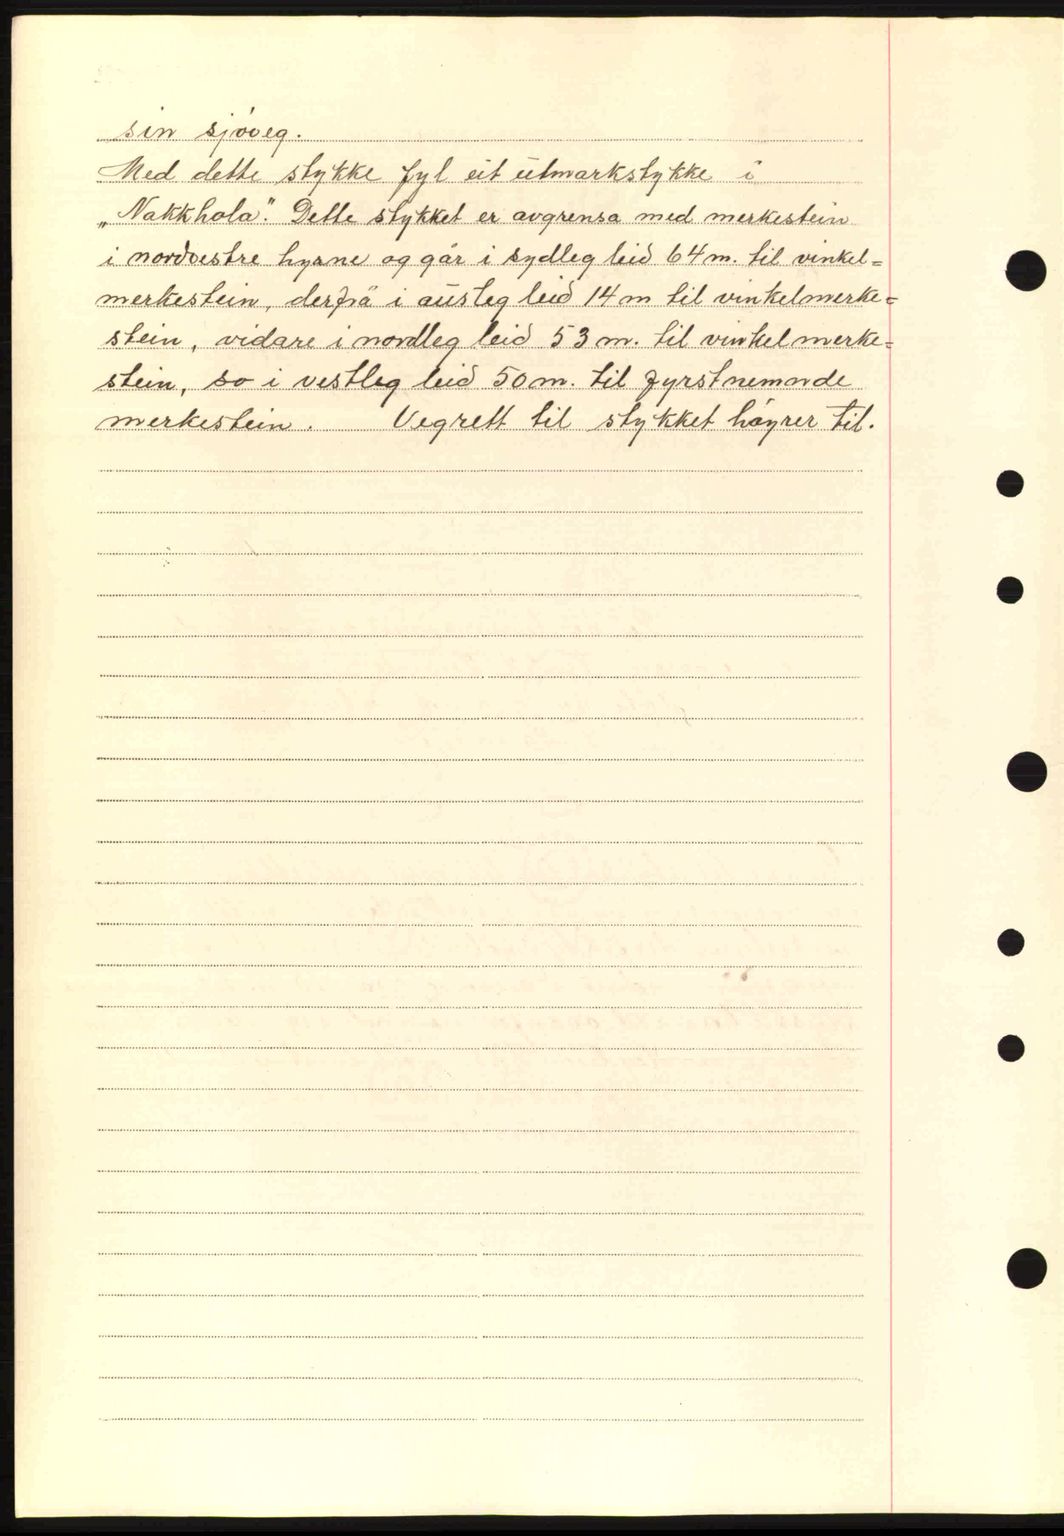 sin sjøveg.
Med dette stykke fyl eit utmarkstykke i
„Nakkhola". Dette stykket er avgrensa med merkestein
i nordvestre hyrne og går i sydleg leid 64 m. til vinkel=
merkestein, derfrå i austleg leid 14 m til vinkelmerke=
stein, vidare i nordleg leid 53 m. til vinkelmerke=
stein, so i vestleg leid 50 m. til fyrstnemnde
merkestein. Vegrett til stykket høyrer til.